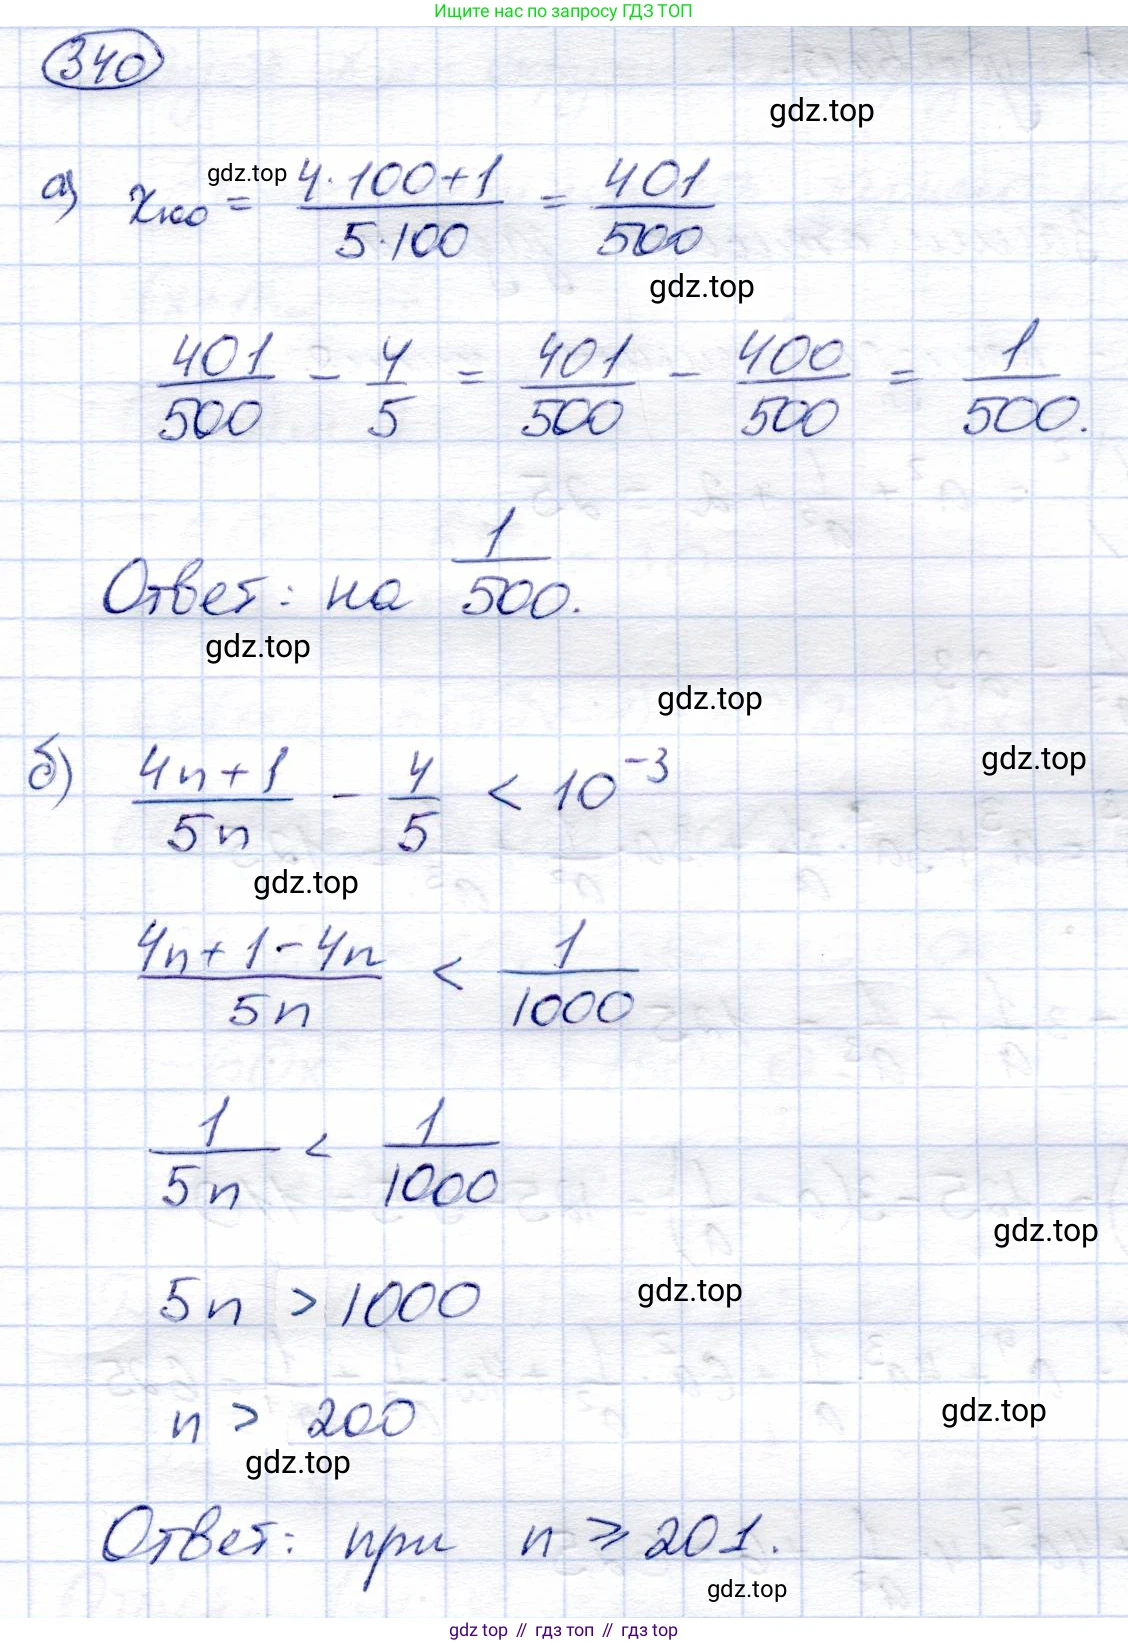 Ищите нас по запросу ГДЗ ТОП
340
gdz.top
а) x₁₀₀ = (4·100+1)/(5·100) = 401/500
gdz.top
gdz.top
401/500 − 4/5 = 401/500 − 400/500 = 1/500.
Ответ: на 1/500.
gdz.top
gdz.top
б) (4n+1)/5n − 4/5 < 10⁻³
gdz.top
gdz.top
(4n+1−4n)/5n < 1/1000
1/5n < 1/1000
gdz.top
5n > 1000
gdz.top
n > 200
gdz.top
gdz.top
Ответ: при n ≥ 201.
gdz.top
gdz top // гдз топ // gdz top